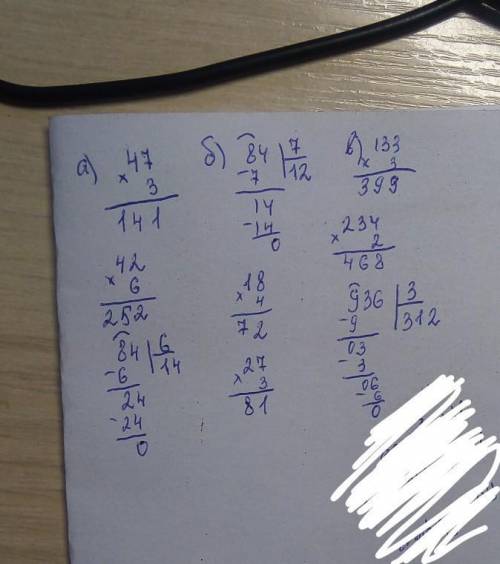 а)
47
× 3
141
42
× 6
252
84 | 6
- 6 14
24
- 24
0
б)
84 | 7
- 7 12
14
- 14
0
18
× 4
72
27
× 3
81
в)
133
× 3
399
234
× 2
468
936 | 3
- 9 312
03
- 3
06
- 6
0